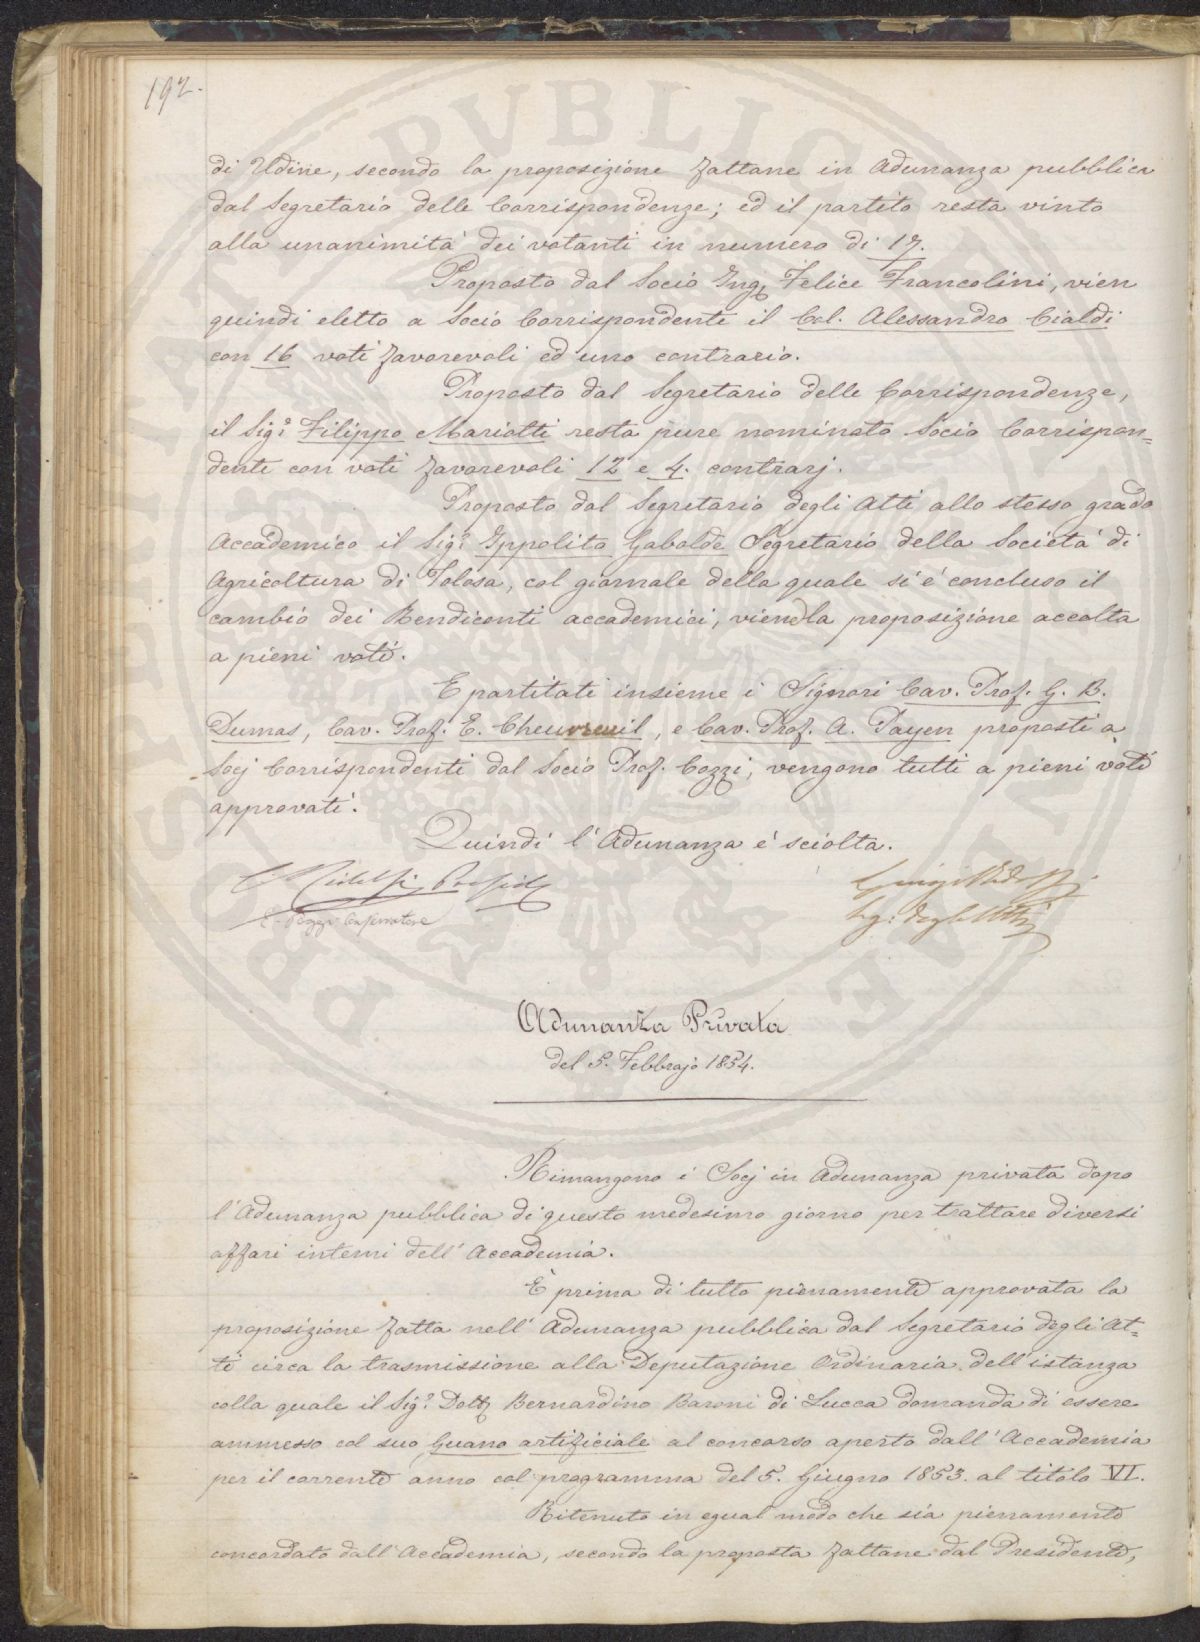 192.
di Udine, secondo la proposizione fattane in Adunanza pubblica
dal Segretario delle Corrispondenze; ed il partito resta vinto
alla unanimità dei votanti in numero di 17.
Proposto dal Socio Ing. Felice Francolini, vien
quindi eletto a Socio Corrispondente il Col. Alessandro Cialdi
con 16 voti favorevoli ed uno contrario.
Proposto dal Segretario delle Corrispondenze,
il Sigr. Filippo Mariotti resta pure nominato Socio Corrispon=
dente con voti favorevoli 12 e 4. contrarj.
Proposto dal Segretario degli Atti allo stesso grado
Accademico il Sigr. Ippolito Gabolde Segretario della Società di
Agricoltura di Tolosa, col giornale della quale si è concluso il
cambio dei Rendiconti accademici, vien la proposizione accolta
a pieni voti.
E partitati insieme i Signori Cav. Prof. G. B.
Dumas, Cav. Prof. E. Chevreuil, e Cav. Prof. A. Payen proposti a
Socj Corrispondenti dal Socio Prof. Cozzi, vengono tutti a pieni voti
approvati.
Quindi l'Adunanza è sciolta.
C. Ridolfi Presid
Luigi Ridolfi
Seg: degli Atti
Adunanza Privata
del 5. Febbrajo 1854.
Rimangono i Socj in Adunanza privata dopo
l'Adunanza pubblica di questo medesimo giorno per trattare diversi
affari interni dell'Accademia.
È prima di tutto pienamente approvata la
proposizione fatta nell'Adunanza pubblica dal Segretario degli At=
ti circa la trasmissione alla Deputazione Ordinaria dell'istanza
colla quale il Sigr. Dott Bernardino Baroni di Lucca domanda di essere
ammesso col suo Guano artificiale al concorso aperto dall'Accademia
per il corrente anno col programma del 5. Giugno 1853. al titolo VI.
Ritenuto in egual modo che sia pienamente
concordato dall'Accademia, secondo la proposta fattane dal Presidente,
PROSPERITATI PVBLICAE